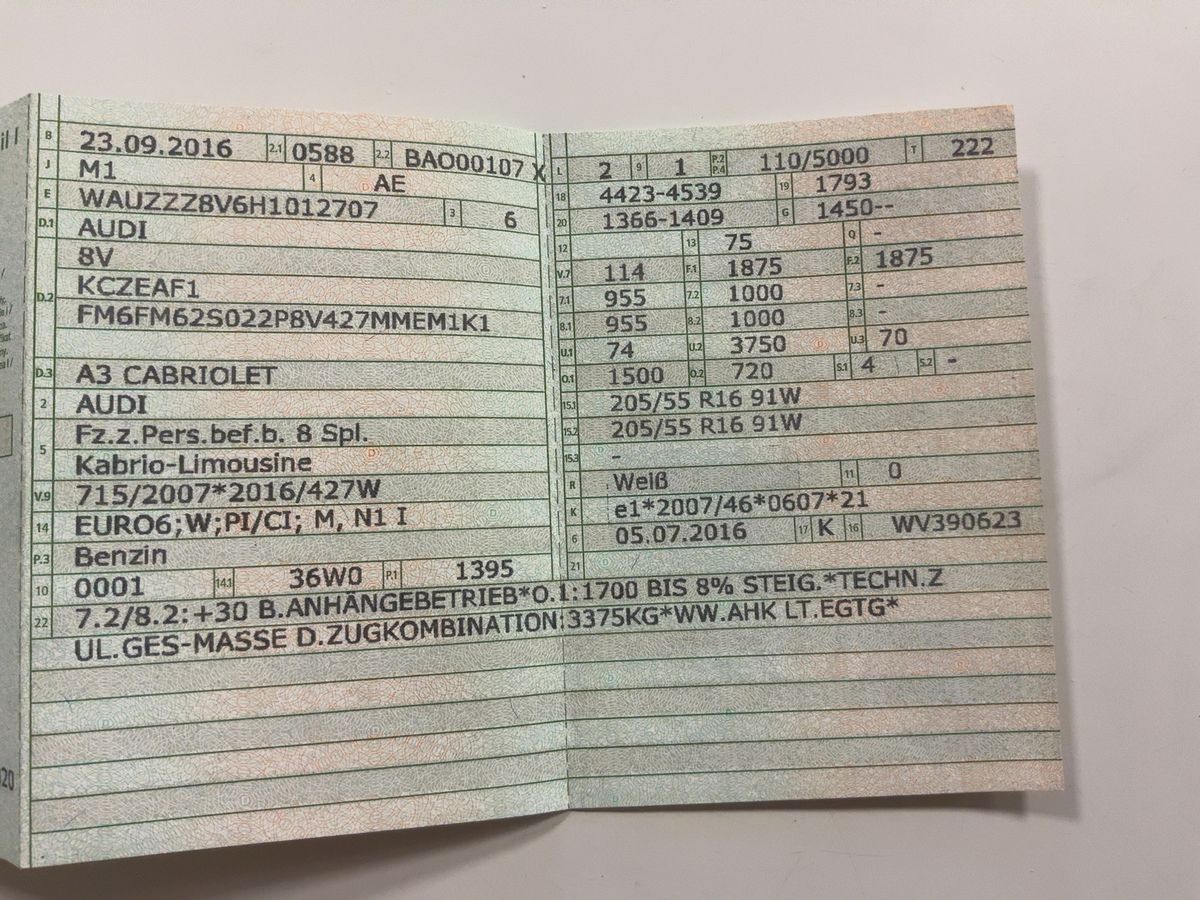 B 23.09.2016 2.1 0588 2.2 BAO00107 X
J M1 4 AE
E WAUZZZ8V6H1012707 3 6
D.1 AUDI
8V
D.2 KCZEAF1
FM6FM62S022P8V427MMEM1K1
D.3 A3 CABRIOLET
2 AUDI
5 Fz.z.Pers.bef.b. 8 Spl.
Kabrio-Limousine
V.9 715/2007*2016/427W
14 EURO6;W;PI/CI; M, N1 I
P.3 Benzin
10 0001 14.1 36W0 P.1 1395
L 2 9 1 P.2 P.4 110/5000 T 222
18 4423-4539 19 1793
20 1366-1409 G 1450--
12 13 75 Q -
V.7 114 F.1 1875 F.2 1875
7.1 955 7.2 1000 7.3 -
8.1 955 8.2 1000 8.3 -
U.1 74 U.2 3750 U.3 70
O.1 1500 O.2 720 S.1 4 S.2 -
15.1 205/55 R16 91W
15.2 205/55 R16 91W
15.3 -
R Weiß 11 0
K e1*2007/46*0607*21
6 05.07.2016 17 K 16 WV390623
21
22 7.2/8.2:+30 B.ANHÄNGEBETRIEB*O.1:1700 BIS 8% STEIG.*TECHN.Z
UL.GES-MASSE D.ZUGKOMBINATION:3375KG*WW.AHK LT.EGTG*